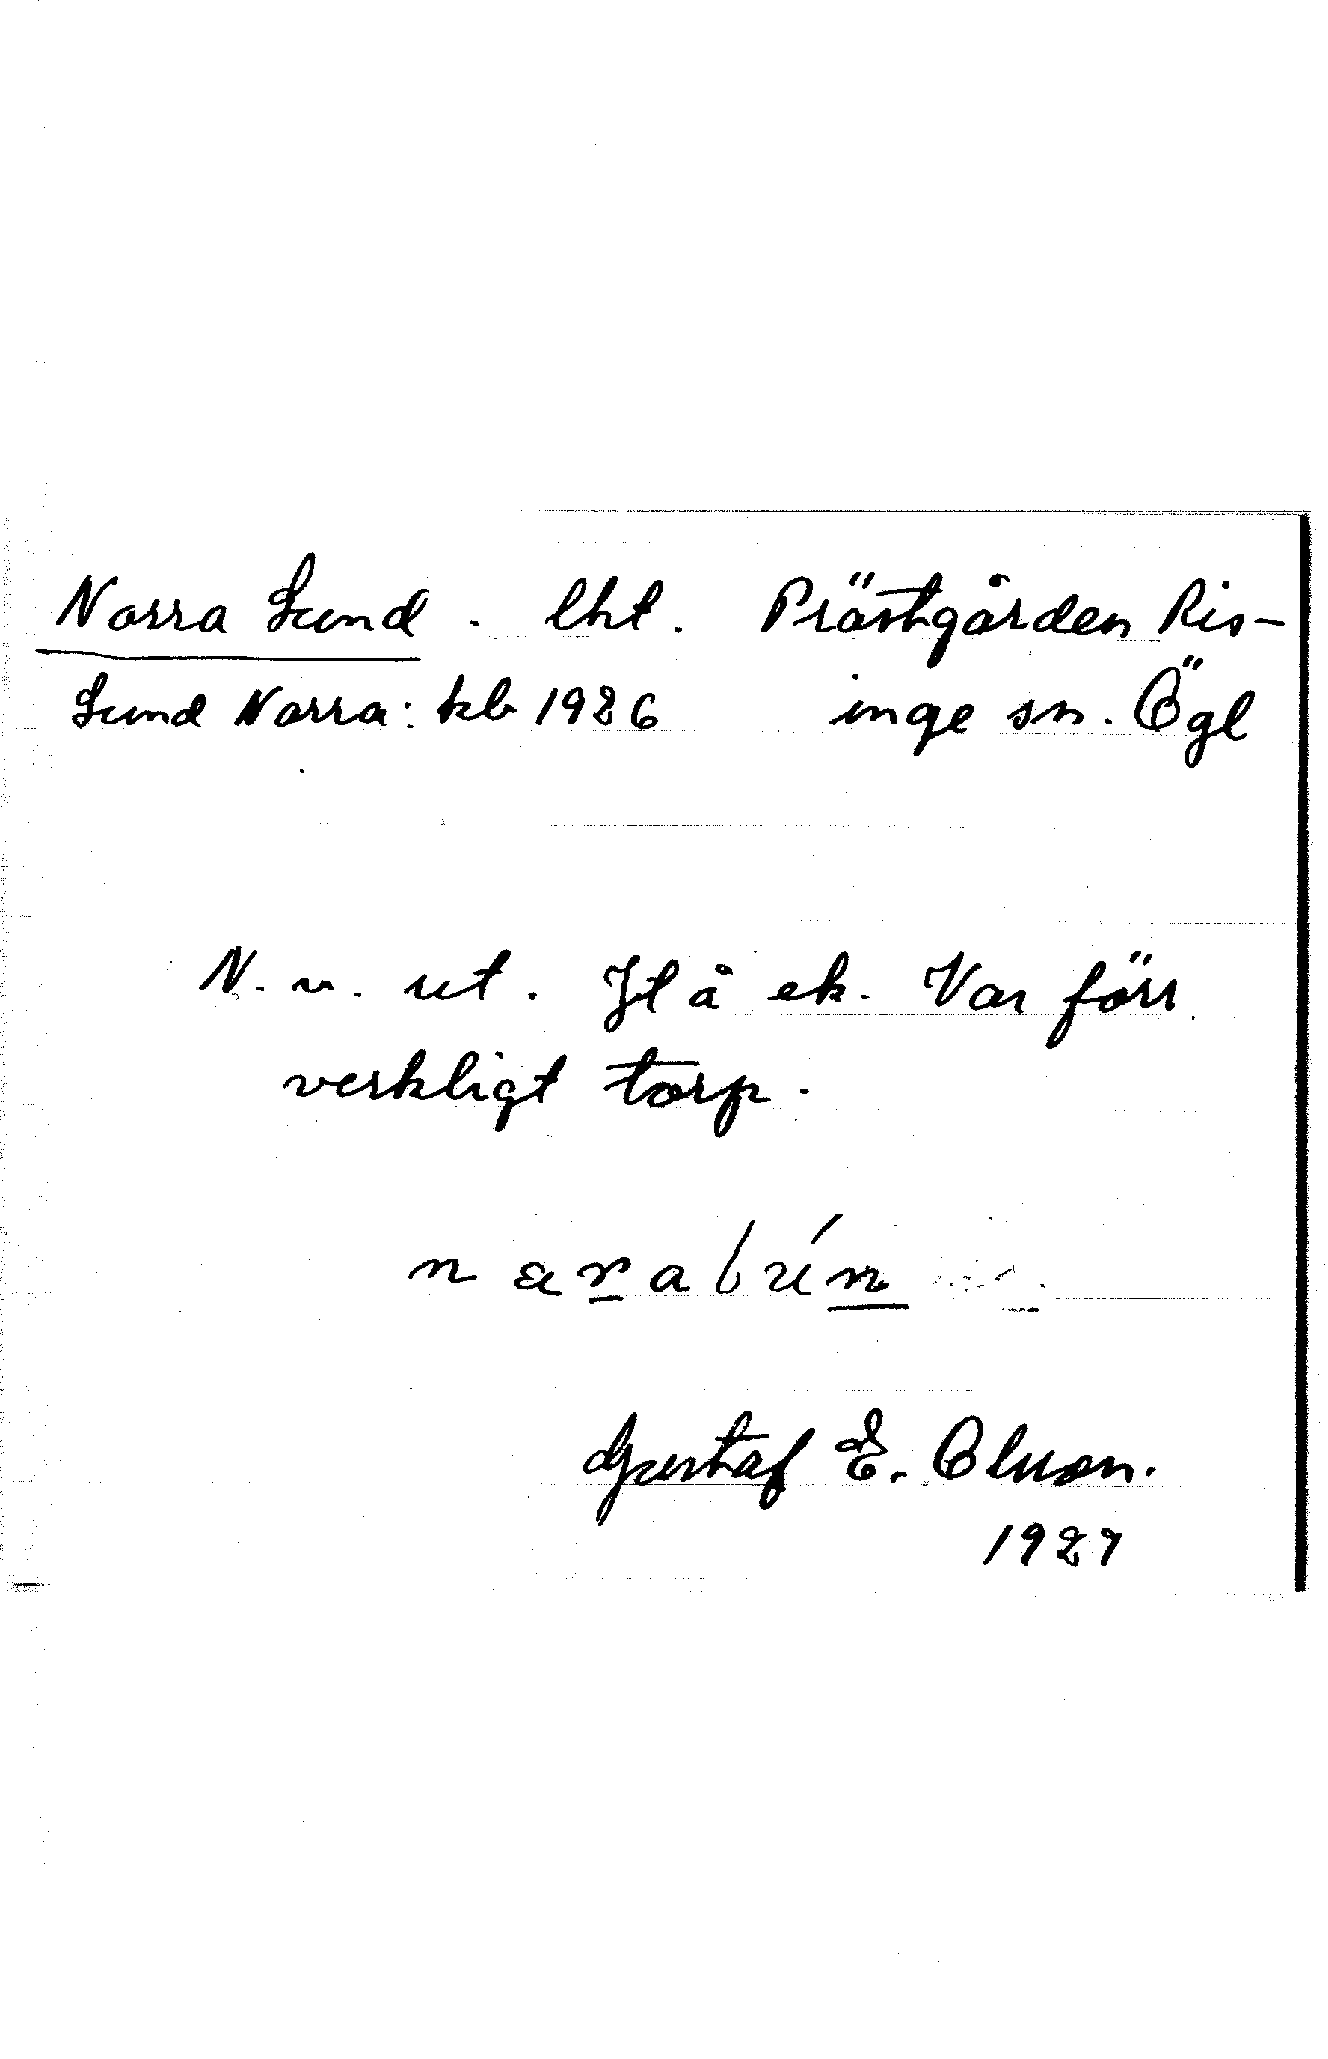 Norra Lund. lht. Prästgården Ris-
Lund Norra: kb 1926 inge sn. Ögl
N. v. ut. Jl å ek. Var förr
verkligt torp.
Gustaf E. Oluson.
1927